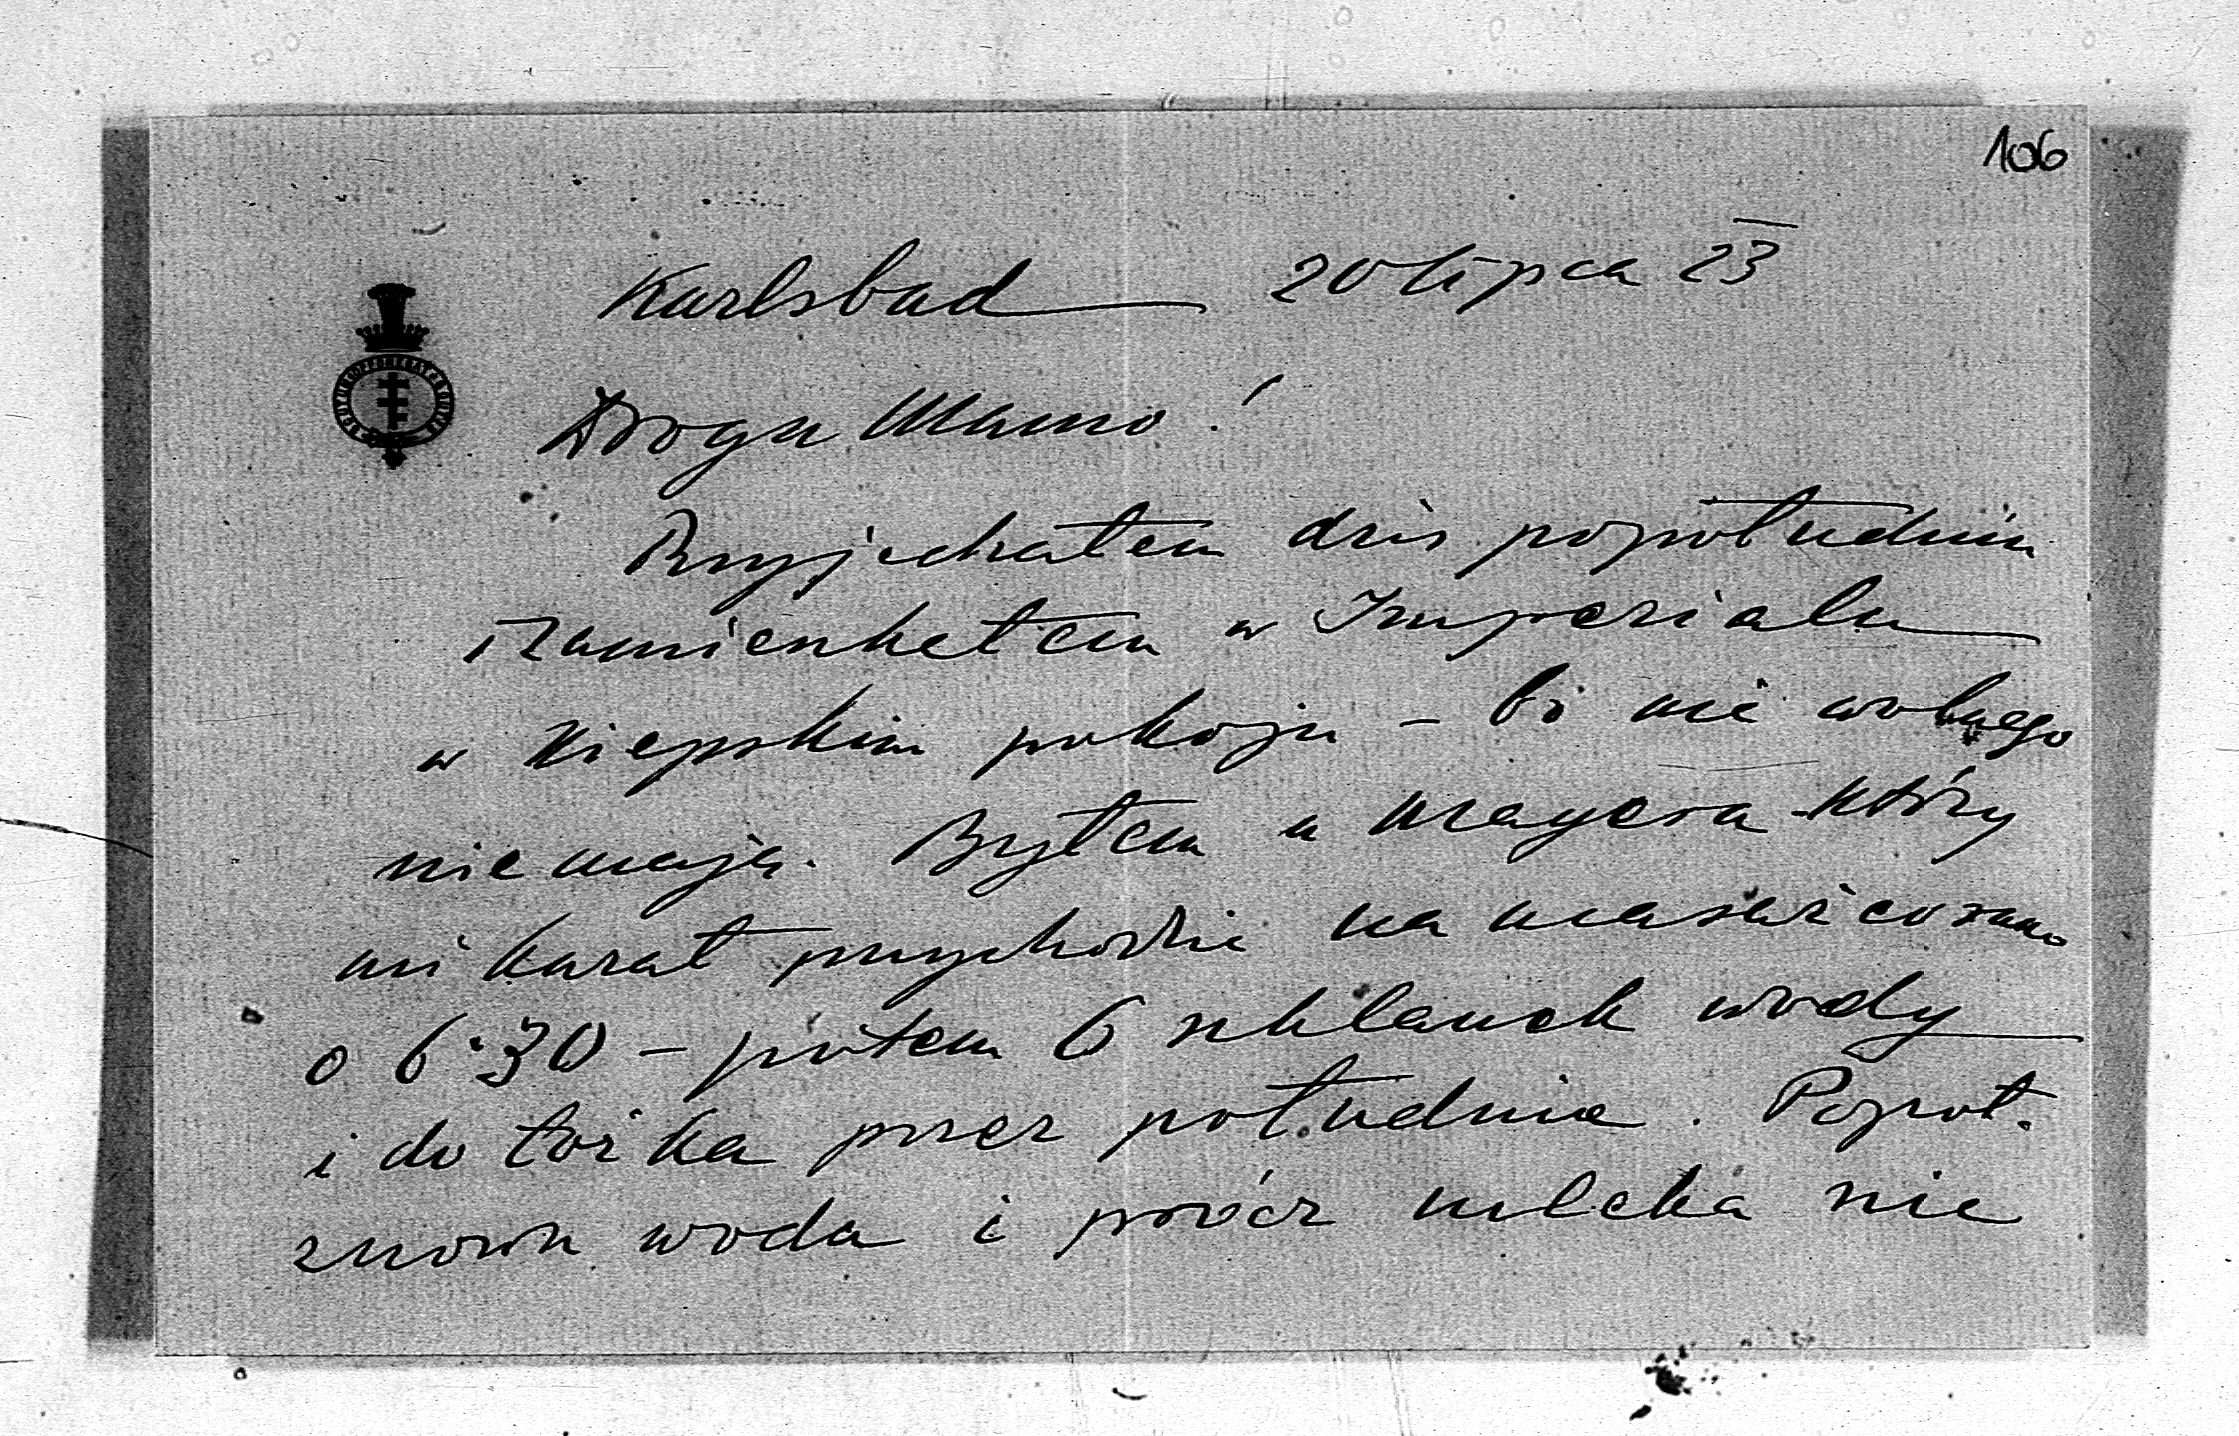 106
Karlsbad 20 lipca 23
Droga Mamo!
Przyjechałem dziś popołudniu
i zamieszkałem w Imperialu
w kiepskim pokoju – bo nic wolnego
nie mają. Byłem u Mayera który
mi kazał przychodzić na masaż co rano
o 6·30 – potem 6 szklanek wody
i do łóżka przez południe. Popoł.
znowu woda i prócz mleka nie